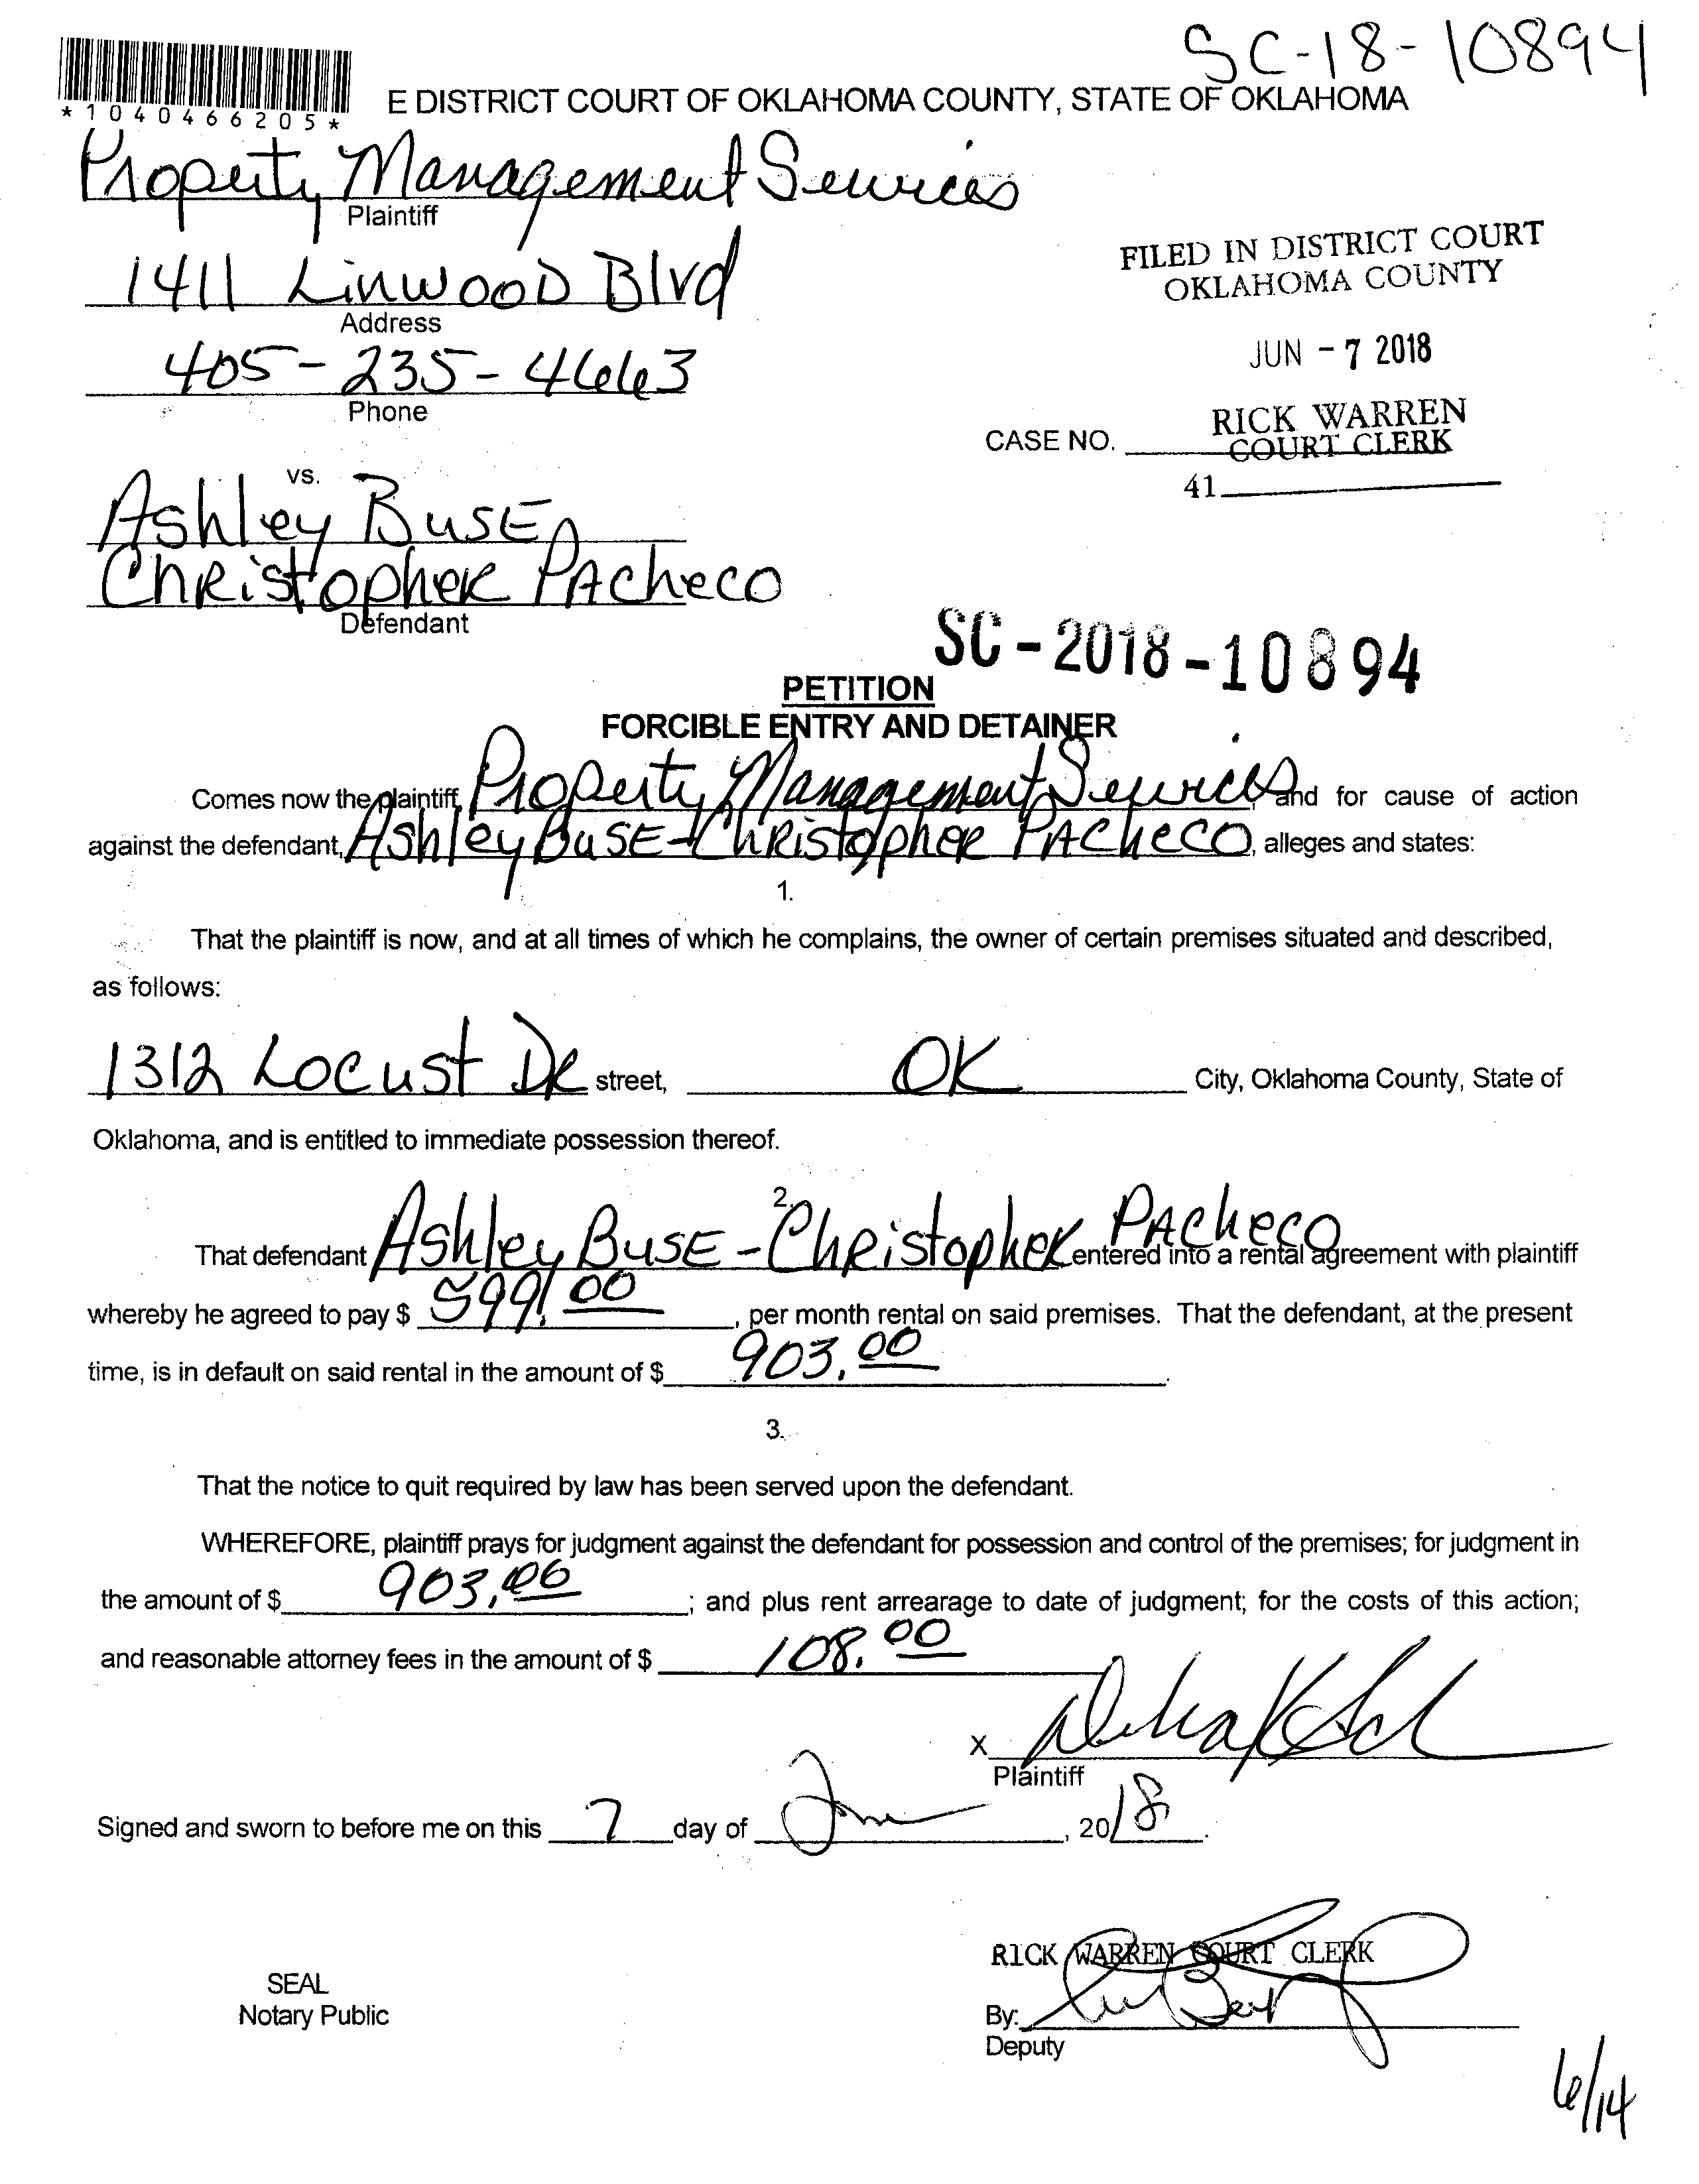 SC-18-10894
*1040466205*
E DISTRICT COURT OF OKLAHOMA COUNTY, STATE OF OKLAHOMA
Property Management Services
Plaintiff
1411 Linwood Blvd
Address
405-235-4663
Phone
FILED IN DISTRICT COURT
OKLAHOMA COUNTY
JUN - 7 2018
RICK WARREN
CASE NO. COURT CLERK
41
vs.
Ashley Buse
Christopher Pacheco
Defendant
SC-2018-10894
PETITION
FORCIBLE ENTRY AND DETAINER
Comes now the plaintiff, Property Management Services, and for cause of action
against the defendant, Ashley Buse - Christopher Pacheco, alleges and states:
1.
That the plaintiff is now, and at all times of which he complains, the owner of certain premises situated and described,
as follows:
1312 Locust Dr street, OK City, Oklahoma County, State of
Oklahoma, and is entitled to immediate possession thereof.
2.
That defendant Ashley Buse - Christopher Pacheco entered into a rental agreement with plaintiff
whereby he agreed to pay $ 599.00, per month rental on said premises. That the defendant, at the present
time, is in default on said rental in the amount of $ 903.00.
3.
That the notice to quit required by law has been served upon the defendant.
WHEREFORE, plaintiff prays for judgment against the defendant for possession and control of the premises; for judgment in
the amount of $ 903.00; and plus rent arrearage to date of judgment; for the costs of this action;
and reasonable attorney fees in the amount of $ 108.00
X
Plaintiff
Signed and sworn to before me on this 7 day of June, 2018.
RICK WARREN COURT CLERK
SEAL
Notary Public
By:
Deputy
6/14